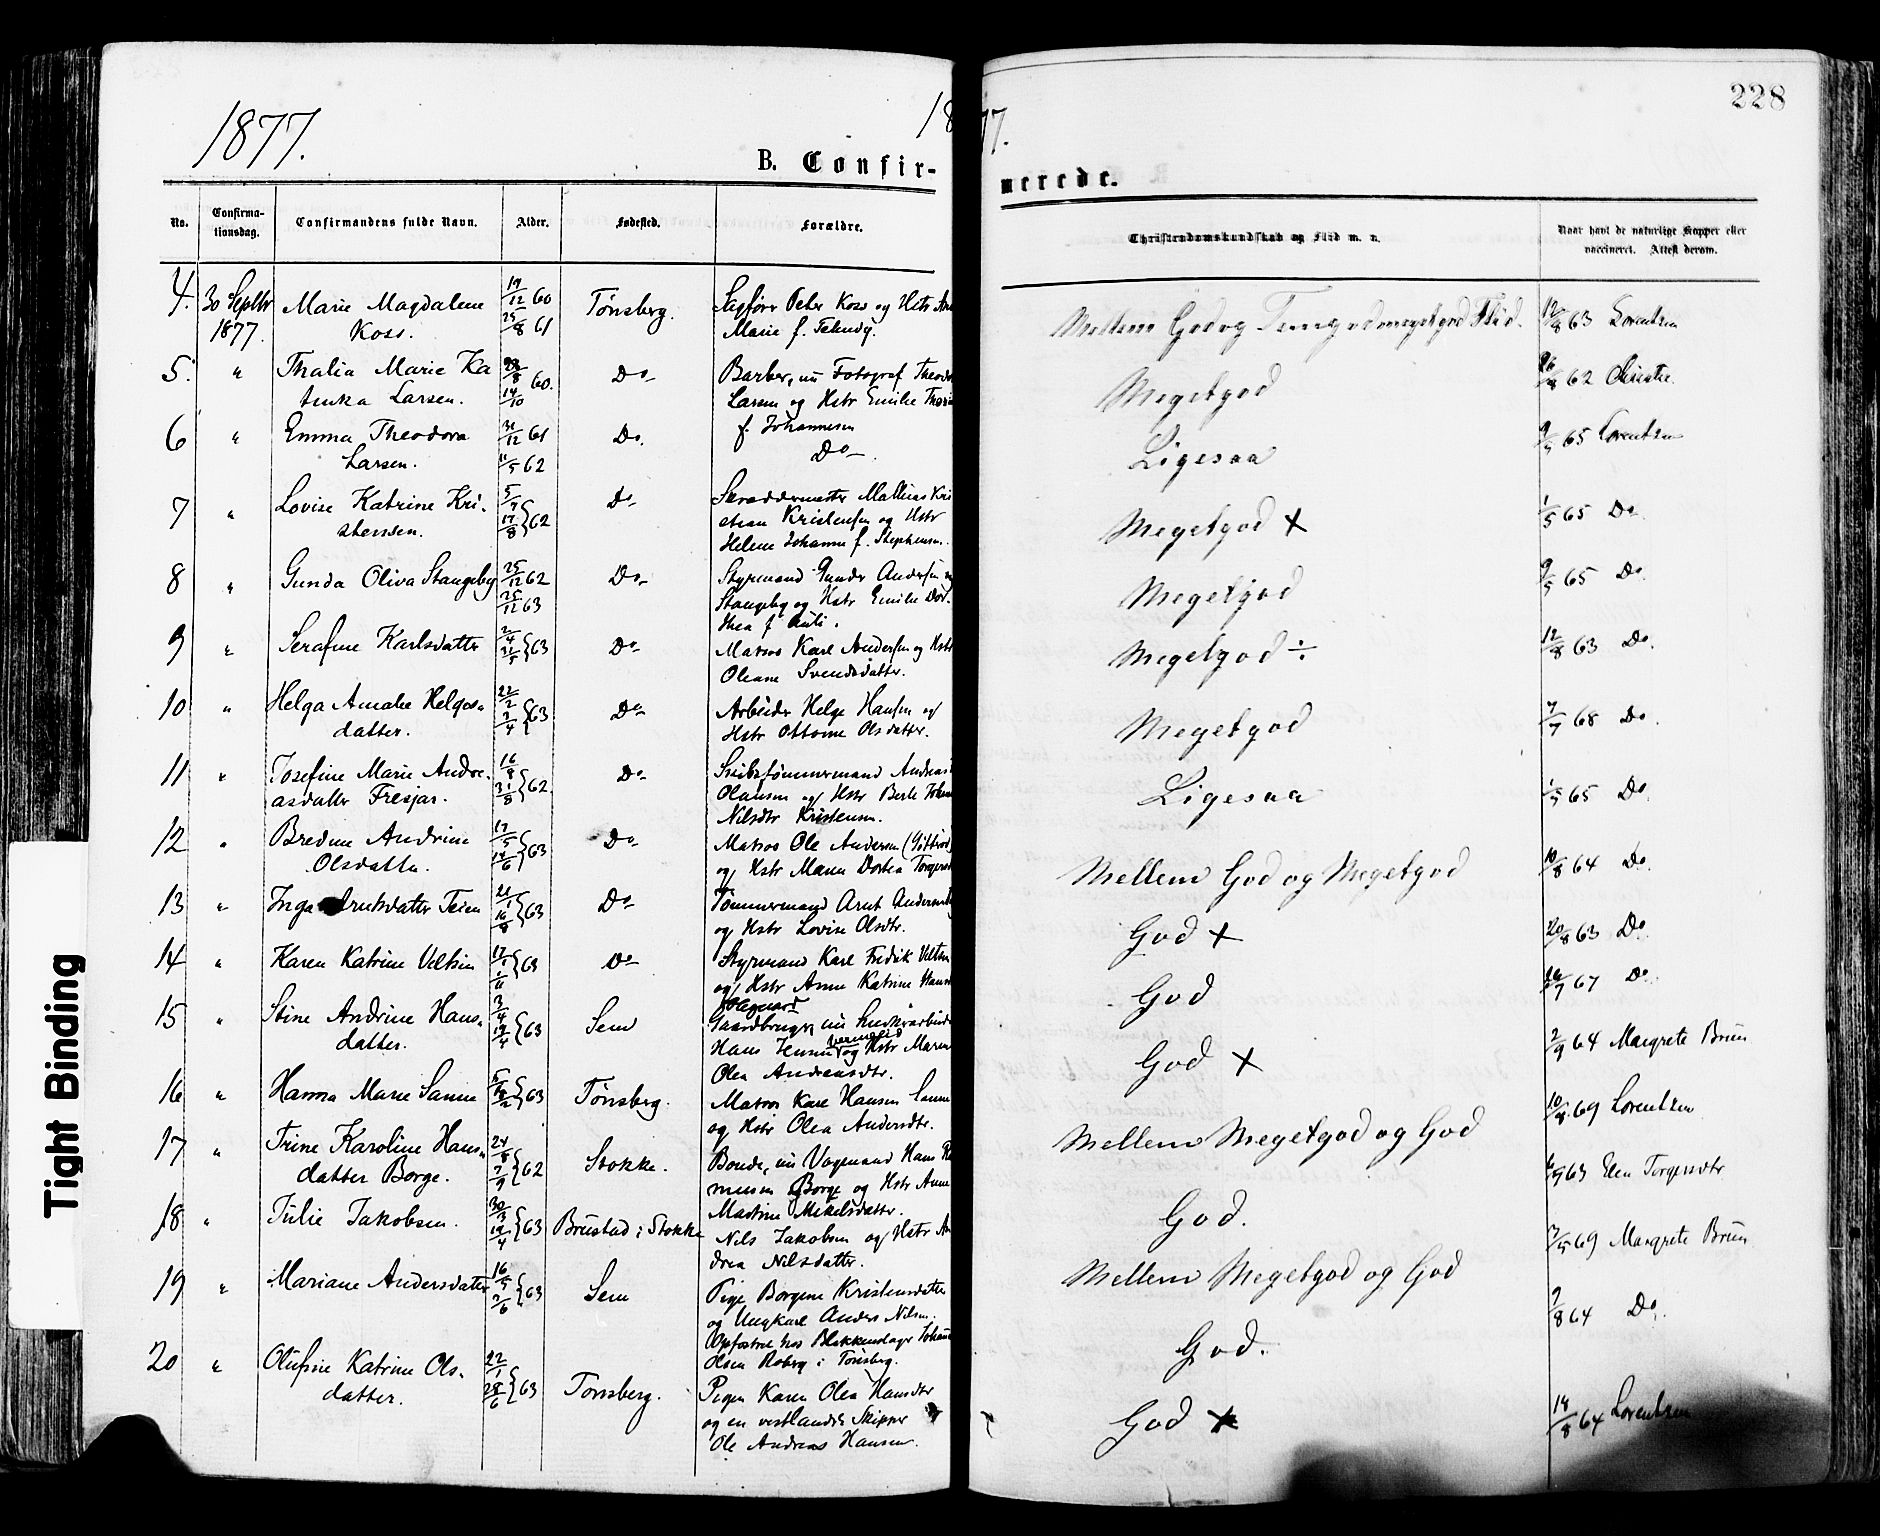 1877.
18
77.
228
B. Confir-
merede.
No.
Confirma-
tionsdag.
Confirmandens fulde Navn.
Alder.
Fødested.
Forældre.
Christendomskundskab og Flid m. v.
Naar havt de naturlige Kopper eller
vaccineret. Attest derom.
4. 30 Septbr Marie Magdalene 19/12 60 Tønsberg. Sagfører Peter Koss og Hstr
1877. Koss. 25/8 61 Marie f.
Mellem God og meget god Flid. 12/8 63 Lorentzen
5. " Thalia Marie Ka 28/8 60. Do Barber, nu Fotograf Theodor
tinka Larsen. 14/10 Larsen og Hstr Emilie
Megetgod 62 Christie
6 " Emma Theodora 31/12 61 Do. f. Johannesen
Larsen. 11/5 62 Do
Ligesaa 65 Lorentzen
7 " Lovise Katrine Kri- 5/7 62 Do Skræddermester Mathias Kri
stensen. 17/8 stian Kristensen og Hstr
Helene Johanne f. Stephensen.
Megetgod + 1/5 65 Do
8 " Gunda Oliva Stangeby 25/12 62 Do Styrmand Gunder Andersen
25/12 63 Stangeby og Hstr Emilie Dor-
thea f
Megetgod 9/5 65 Do
9 " Serafine Karlsdatter 2/4 63 Do Matros Karl Andersen og Hstr
31/5 Oleane Svendsdatter.
Megetgod ÷ 12/8 63 Do.
10 " Helga Amalie Helges- 22/2 63 Do Arbeider Helge Hansen og
datter. 3/4 Hstr Ottomine Olsdatter.
Megetgod 7/7 68 Do.
11 " Josefine Marie Andre- 16/8 62 Do Skibstømmermand Andreas
asdatter Fresjar. 31/8 Olausen og Hstr Berte
Nilsdtr Kristensen.
Ligesaa 65 Do
12 " Andrine 17/5 63 Do Matros Ole Andersen
Olsdatter. 14/6 og Hstr Maren Dortea
Mellem God og Megetgod 10/8 64 Do.
13 " Inga Teien 21/1 63 Do Tømmermand Arnt Andersen
16/8 og Hstr Lovise Olsdtr.
God + 20/8 63 Do
14 " Karen Katrine Veltzin 63 Do Styrmand Karl Fredrik
og Hstr Anne Katrine
God 67 Do
15 " Stine Andrine Hans- 3/4 63 Sem Gaardbruger, nu
datter. 19/4 Hans Jensen og Hstr Maren
Olea Andreasdtr.
God + 2/9 64 Margrete Brun
16 " Hanna Marie Sanne 63 Tønsberg. Matros Karl Hansen Sanne
og Hstr Olea Andersdtr.
Mellem Megetgod og God 10/8 69 Lorentzen
17 " Trine Karoline Hans- 24/8 62 Stokke. Bonde, nu Vognmand Hans
datter Borge. 7/9 Borge og Hstr Anne
Martine Mikelsdatter.
God. 63 Elen Torgersdtr
18 " Julie Jakobsen. 30/3 63 Brustad i Stokke Nils Jakobsen og Hstr An
14/4 drea Nilsdatter.
Mellem Megetgod og God 7/5 69 Margrete Brun
19 " Mariane Andersdatter 16/5 63 Sem Pige Borgine Kristensdatter
7/6 og Ungkarl Anders Nilsen.
Opfostret hos Blikkenslager Johan
Olsen Roberg i Tønsberg.
God. 7/8 64 Do.
20 " Olufine Katrine Ols- 22/1 63 Tønsberg. Pigen Karen Olea Hansdtr
datter. 28/6 og en vestlandsk Skipper
Ole Andreas Hansen.
God + 14/8 64 Lorentzen
Tight Binding